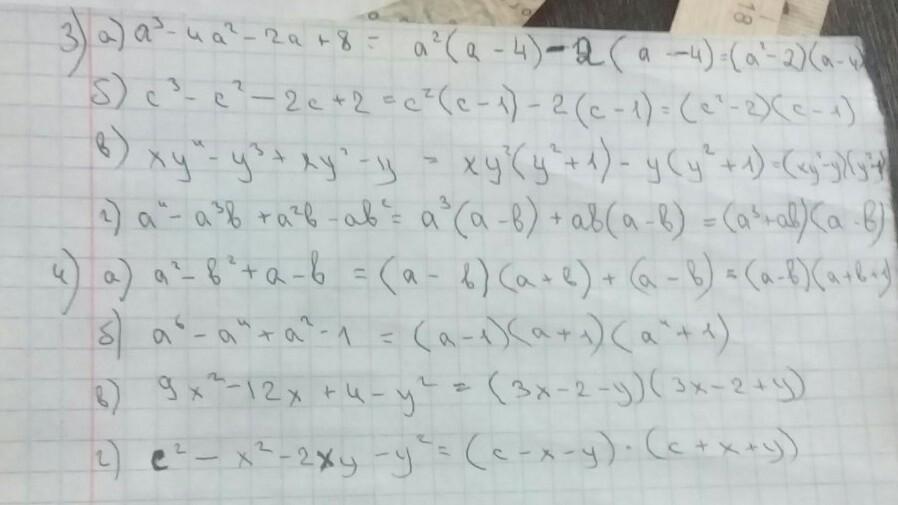 18
3) а) a³ - 4a² - 2a + 8 = a²(a - 4) - 2(a - 4) = (a² - 2)(a - 4)
б) c³ - c² - 2c + 2 = c²(c - 1) - 2(c - 1) = (c² - 2)(c - 1)
в) xy⁴ - y³ + xy² - y = xy²(y² + 1) - y(y² + 1) = (xy² - y)(y²+1)
г) a⁴ - a³b + a²b - ab² = a³(a - b) + ab(a - b) = (a³ + ab)(a - b)
4) а) a² - b² + a - b = (a - b)(a + b) + (a - b) = (a - b)(a + b + 1)
б) a⁶ - a⁴ + a² - 1 = (a - 1)(a + 1)(a⁴ + 1)
в) 9x² - 12x + 4 - y² = (3x - 2 - y)(3x - 2 + y)
г) c² - x² - 2xy - y² = (c - x - y) · (c + x + y)